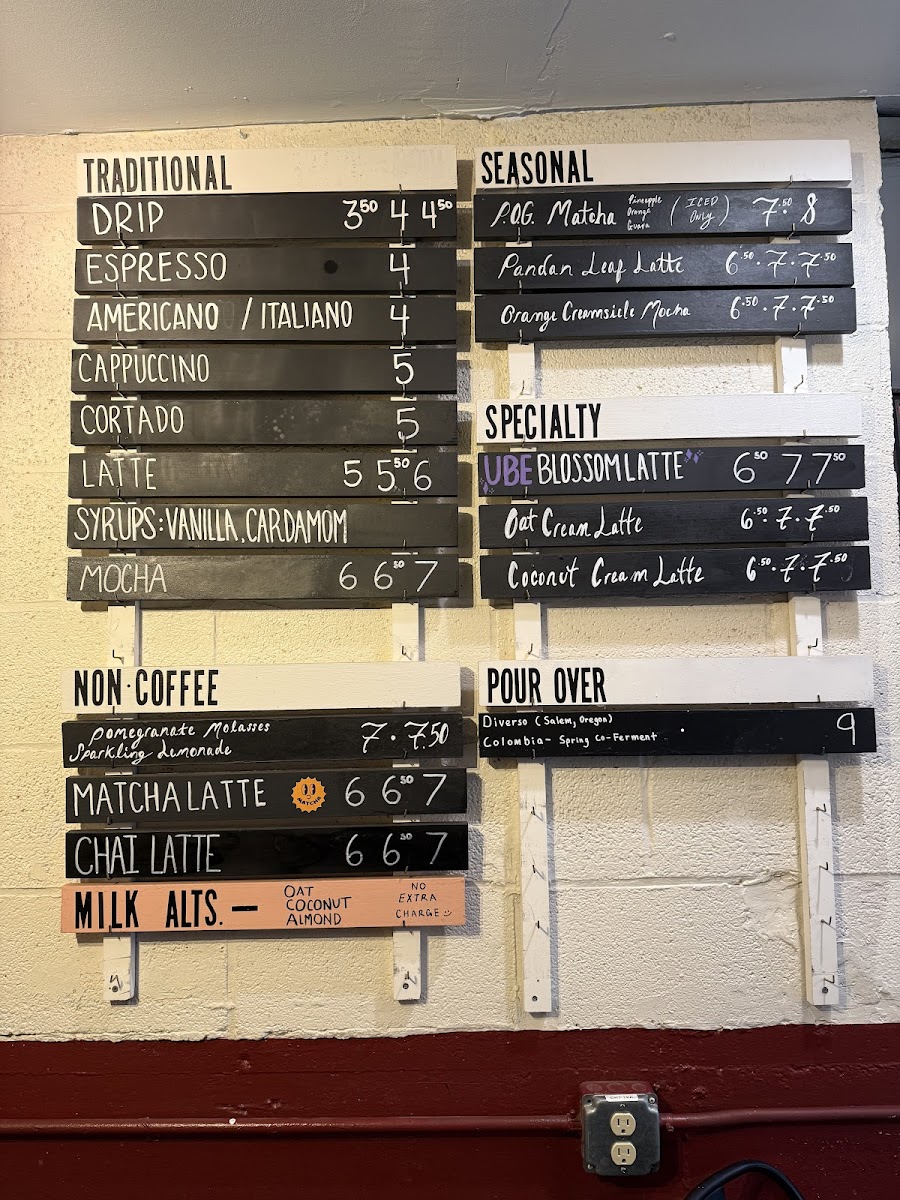 TRADITIONAL
DRIP 3.50 4 4.50
ESPRESSO 4
AMERICANO / ITALIANO 4
CAPPUCCINO 5
CORTADO 5
LATTE 5 5.50 6
SYRUPS: VANILLA, CARDAMOM
MOCHA 6 6.50 7
NON-COFFEE
Pomegranate Molasses
Sparkling Lemonade 7 . 7.50
MATCHA LATTE MATCHA 6 6.50 7
CHAI LATTE 6 6.50 7
MILK ALTS. —
OAT
COCONUT
ALMOND
NO
EXTRA
CHARGE
SEASONAL
P.O.G. Matcha Pineapple Orange Guava (ICED ONLY) 7.50 . 8
Pandan Leaf Latte 6.50 . 7 . 7.50
Orange Creamsicle Mocha 6.50 . 7 . 7.50
SPECIALTY
UBE BLOSSOM LATTE 6.50 7 7.50
Oat Cream Latte 6.50 . 7 . 7.50
Coconut Cream Latte 6.50 . 7 . 7.50
POUR OVER
Diverso (Salem, Oregon) 9
Colombia - Spring Co-Ferment